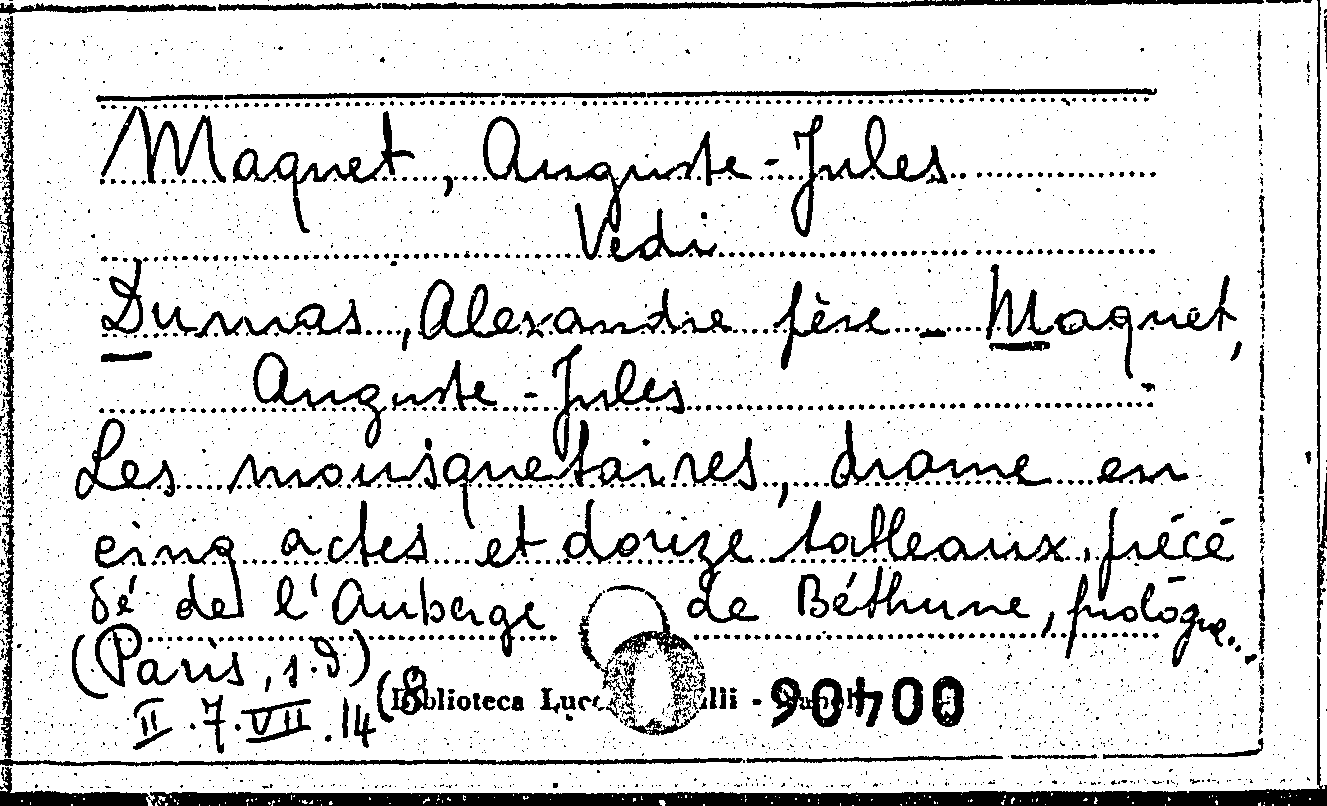 Maquet, Auguste-Jules
Vedi
Dumas, Alexandre père - Maquet,
Auguste-Jules
Les mousquetaires, drame en
cinq actes et douze tableaux, précé
dé de l'Auberge de Béthune, prologue...
(Paris, s.d)
II.7.VII.14(8
Biblioteca Lucc lli - Napoli
00406